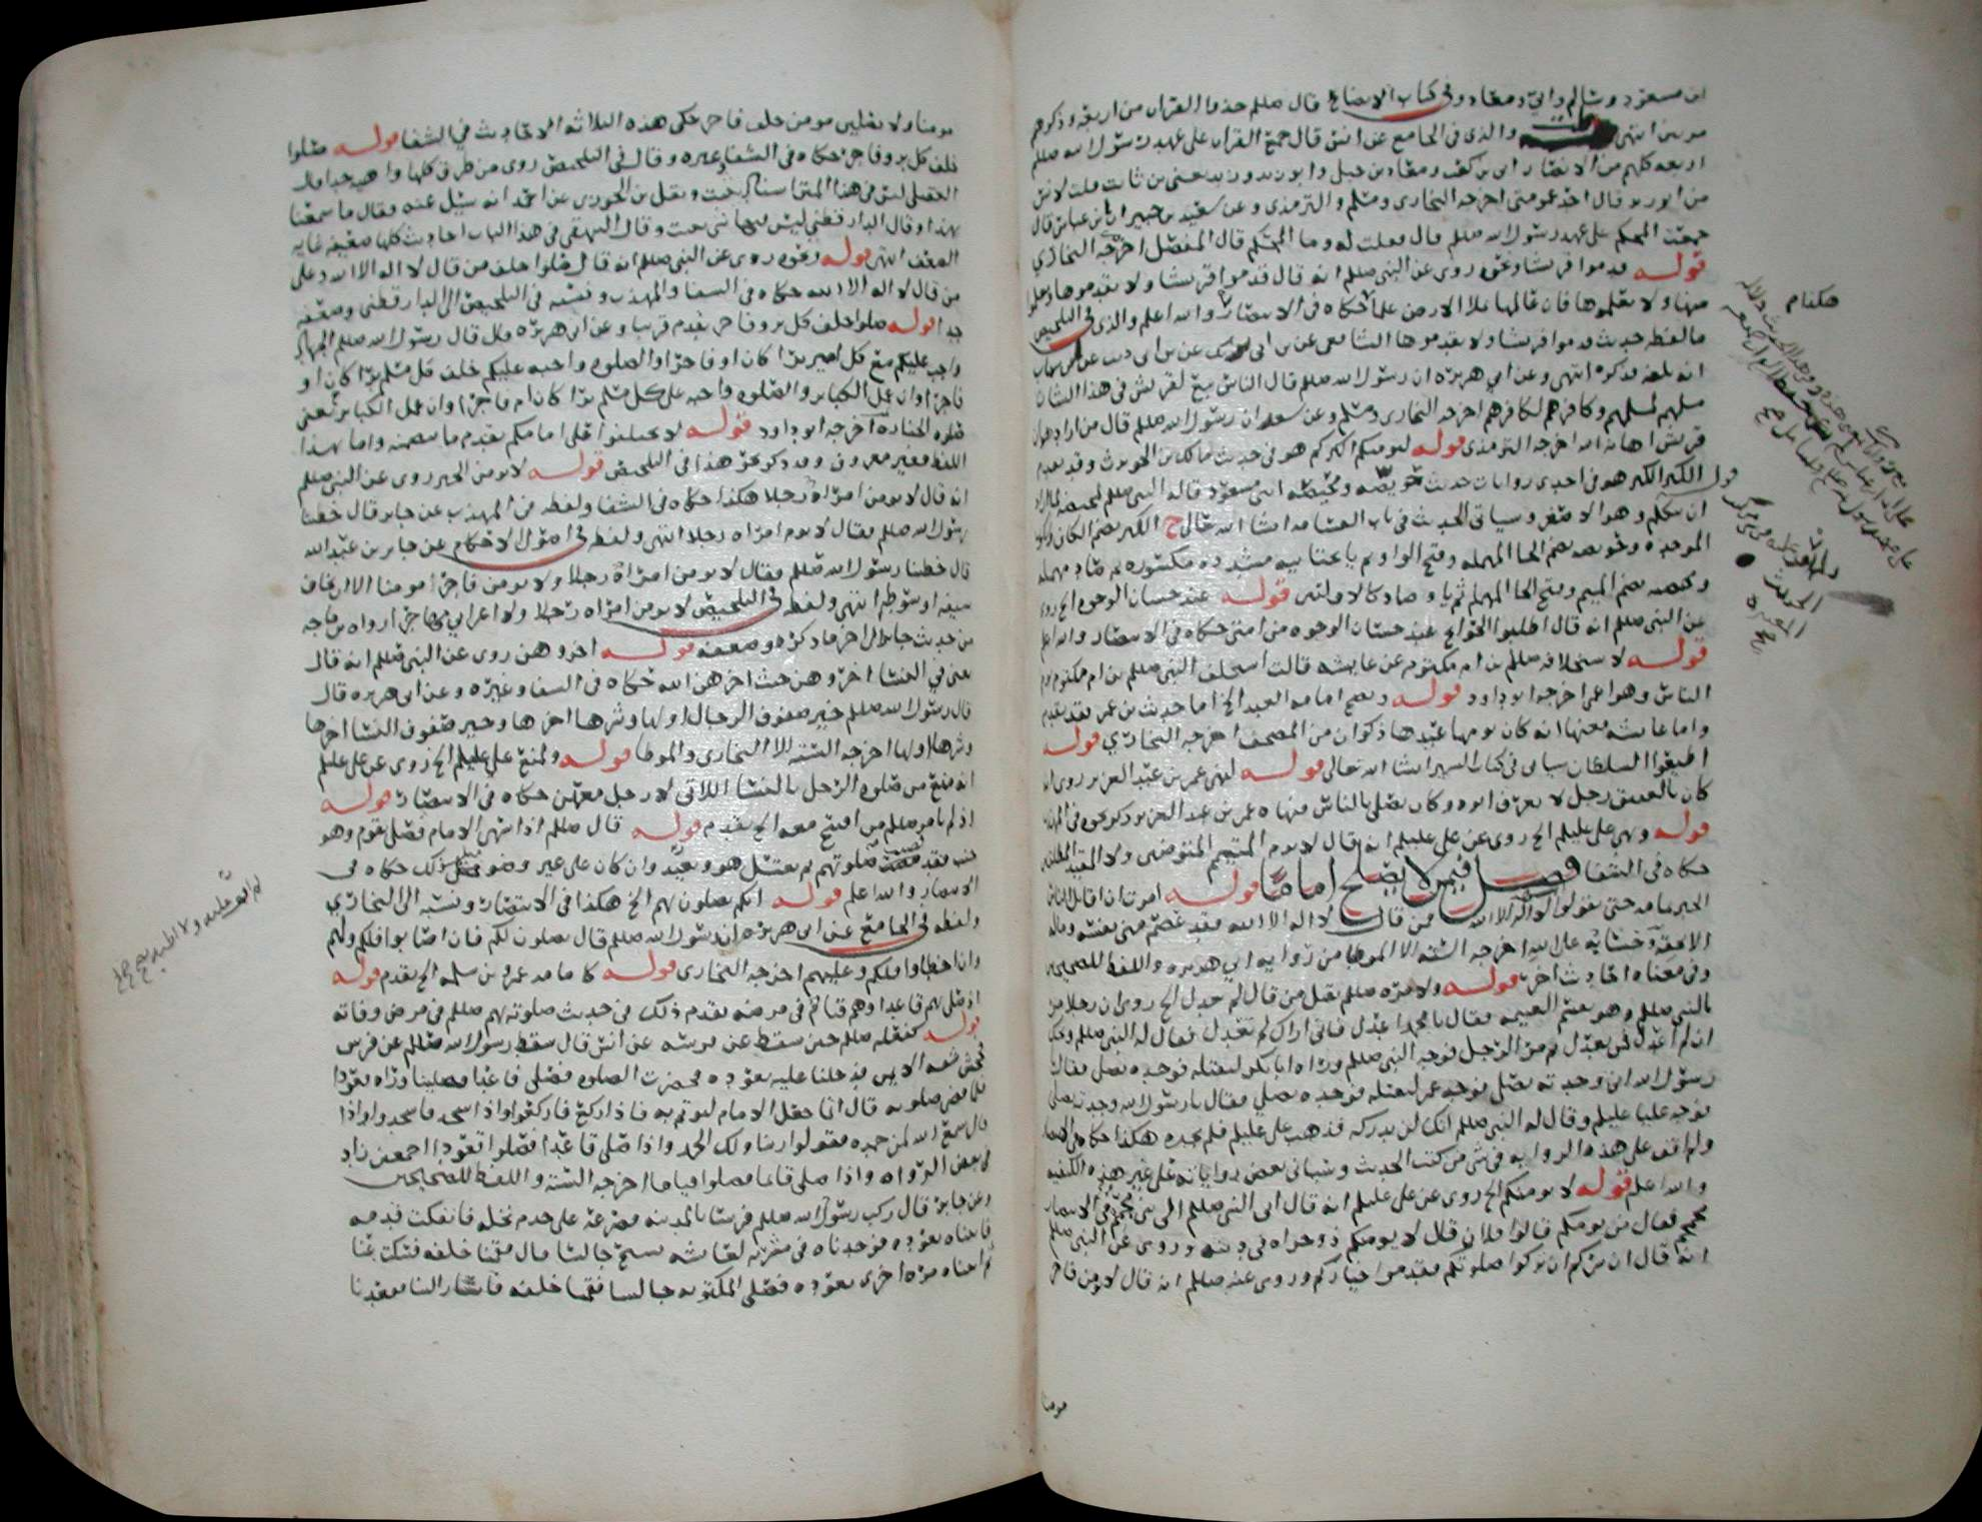 ابن مسعود وسالم وابي ومعاذ وفي كتاب الايضاح قال صللم خذوا القران من اربعة وذكرهم
انتهى والذي في الجامع عن انس قال جمع القران على عهد رسول الله صللم
اربعة كلهم من الانصار ابي بن كعب ومعاذ بن جبل وابو زيد وزيد يعني بن ثابت قلت لانس
من ابو زيد قال احد عمومتي اخرجه البخاري ومسلم والترمذي وعن سعيد بن جبير ان ابن عباس قال
جمعت المحكم على عهد رسول الله صللم قال فقلت له وما المحكم قال المفصل اخرجه البخاري
قوله قدموا قريشا ونحوه روي عن النبي صللم انه قال قدموا قريشا ولا تقدموها وتعلموا
منها ولا تعلموها فان عالمها يملا الارض علما حكاه في الانتصار والله اعلم والذي في التلخيص
ما لفظه حديث قدموا قريشا ولا تقدموها الشافعي عن بن ابي فديك عن بن ابي ذيب عن بن شهاب
انه بلغه فذكره انتهى وعن ابي هريرة ان رسول الله صللم قال الناس تبع لقريش في هذا الشان
مسلمهم لمسلمهم وكافرهم لكافرهم اخرجه البخاري ومسلم وعن سعد ان رسول الله صللم قال من اراد هوان
قريش اهانه الله اخرجه الترمذي قوله ليومكم اكبركم هو في حديث مالك بن الحويرث وقد تقدم
قوله الكبر الكبر هو في احدى روايات حديث حويصة ومحيصة ابني مسعود قاله النبي صللم لمحيصة لما اراد
ان يتكلم وهو الاصغر وسياتي الحديث في باب القسامة انشا الله تعالى ح الكبر بضم الكاف وسكون
الموحدة وحويصه بضم الحا المهمله وفتح الواو ثم يا مثناه مشدده مكسوره ثم صاد مهمله
ومحيصه بضم الميم وفتح الحا المهمله ثم يا وصاد كالاولتين قوله عند حسان الوجوه الخ روي
عن النبي صللم انه قال اطلبوا الحوايج عند حسان الوجوه من امتي حكاه في الانتصار والله اعلم
قوله لاستخلافه صللم بن ام مكتوم عن عايشه قالت استخلف النبي صللم بن ام مكتوم يوم
الناس وهو اعمى اخرجه ابو داود قوله وتصح امامه العبد الخ اما حديث بن عمر فقد تقدم
واما عايشه فعنها انه كان يومها عبدها ذكوان من المصحف اخرجه البخاري قوله
اطيعوا السلطان سياتي في كتاب السير انشا الله تعالى قوله لنهي عمر بن عبد العزيز روي انه
كان بالعقيق رجل لا يعرف ابوه وكان يصلي بالناس فنهاه عمر بن عبد العزيز ذكر نحوه في المهذب
قوله ونهي علي عليلم الخ روي عن علي عليلم انه قال لا يوم المتيمم المتوضين ولا المقيد المطلقين
حكاه في الشفا فصل فيمن لا يصلح اماما قوله امرت ان اقاتل الناس
الخبر تمامه حتى يقولوا لا اله الا الله فمن قال لا اله الا الله فقد عصم مني نفسه وماله
الا بحقه وحسابه على الله اخرجه السته الا الموطا من رواية ابي هريره واللفظ للصحيحين
وفي معناه احاديث اخر قوله ولامره صللم بقتل من قال لم تعدل الخ روي ان رجلا مر
بالنبي صللم وهو يقسم الغنيمه فقال يا محمد اعدل فاني اراك لم تعدل فقال له النبي صللم ويحك
ان لم اعدل فمن يعدل ثم مر الرجل فوجه النبي صللم وراه ابا بكر ليقتله فوجده يصلي فقال
رسول الله اني وجدته يصلي فوجه عمر ليقتله فوجده يصلي فقال يا رسول الله وجدته يصلي
فوجه عليا عليلم وقال له النبي صللم انك لن تدركه فذهب علي عليلم فلم يجده هكذا حكاه في الانتصار
ولم اقف على هذه الرواية في شي من كتب الحديث وسياتي بعض رواياته على غير هذه الكيفيه
والله اعلم قوله لا يومنكم الخ روي عن علي عليلم انه قال اتى النبي صللم الى بني مجمم في الانصار
فقال من يومكم قالوا فلان قال لا يومنكم ذو جراه في دينه وروي عن النبي صللم
انه قال ان سركم ان تزكوا صلوتكم فقدموا خياركم وروي عنه صللم انه قال لا يومن فاجر
مومنا
هكذا م
مومنا ولا يصلين مومن خلف فاجر حكى هذه الثلاثه الاحاديث في الشفا قوله صلوا
خلف كل بر وفاجر حكاه في الشفا وغيره وقال في التلخيص روي من طرق كلها واهيه جدا قال
العقيلي ليس في هذا المتن اسناد يثبت ونقل بن الجوزي عن احمد انه سيل عنه فقال ما سمعنا
بهذا وقال الدارقطني ليس فيها شي يثبت وقال البيهقي في هذا الباب احاديث كلها ضعيفه غايه
الضعف انتهى قوله ونحوه روي عن النبي صللم انه قال صلوا خلف من قال لا اله الا الله وعلى
من قال لا اله الا الله حكاه في الشفا والمهذب ونسبه في التلخيص الى الدارقطني وضعفه
جدا قوله صلوا خلف كل بر وفاجر تقدم قريبا وعن ابي هريره قال قال رسول الله صللم الجهاد
واجب عليكم مع كل امير برا كان او فاجرا والصلوه واجبه عليكم خلف كل مسلم برا كان او
فاجرا وان عمل الكباير والصلوه واجبه على كل مسلم برا كان ام فاجرا وان عمل الكباير يعني
صلوه الجنازه اخرجه ابو داود قوله لا تجعلوا قبلى امامكم تقدم ما يتضمنه واما بهذا
اللفظ فغير معروف وقد ذكر نحو هذا في التلخيص قوله لا يومن الخبر روي عن النبي صللم
انه قال لا تومن امراة رجلا هكذا حكاه في الشفا ولفظه في المهذب عن جابر قال خطبنا
رسول الله صللم فقال لا توم امراه رجلا انتهى ولفظه في اصول الاحكام عن جابر بن عبد الله
قال خطبنا رسول الله صللم فقال لا تومن امراة رجلا ولا يومن فاجر مومنا الا ان يخاف
سيفه او سوطه انتهى ولفظه في التلخيص لا تومن امراه رجلا ولا اعرابي مهاجرا رواه بن ماجه
من حديث جابر في اخر ما ذكره وضعفه قوله اخروهن روي عن النبي صللم انه قال
يعني في النسا اخروهن حيث اخرهن الله حكاه في الشفا وغيره وعن ابي هريره قال
قال رسول الله صللم خير صفوف الرجال اولها وشرها اخرها وخير صفوف النسا اخرها
وشرها اولها اخرجه السته الا البخاري والموطا قوله ولمنع علي عليلم الخ روي عن علي عليلم
انه منع من صلوه الرجل بالنسا اللاتي لا رجل معهن حكاه في الانتصار قوله
اذ لم يامر صللم من افتتح معه الخ تقدم قوله قال صللم اذا سهى الامام فصلى بقوم وهو
جنب فقد مضت صلوتهم ثم يغتسل هو ويعيد وان كان على غير وضو فمثل ذلك حكاه في
الانتصار والله اعلم قوله ايكم يصلون بهم الخ هكذا في الانتصار ونسبه الى البخاري
ولفظه في الجامع عن ابي هريره ان رسول الله صللم قال يصلون لكم فان اصابوا فلكم ولهم
وان اخطاوا فلكم وعليهم اخرجه البخاري قوله كامامه عمرو بن سلمه الخ تقدم قوله
اذ صلى بهم قاعدا وهم قيام في مرضه تقدم ذلك في حديث صلوته بهم صللم في مرض وفاته
قوله كفعله صللم حين سقط عن فرسه عن انس قال سقط رسول الله صللم عن فرس
فجحش شقه الايمن فدخلنا عليه نعوده فحضرت الصلوه فصلى قاعدا فصلينا وراه قعودا
فلما قضى صلوته قال انما جعل الامام ليوتم به فاذا ركع فاركعوا واذا سجد فاسجدوا واذا
قال سمع الله لمن حمده فقولوا ربنا ولك الحمد واذا صلى قاعدا فصلوا قعودا اجمعين زاد
في بعض الرواه واذا صلى قايما فصلوا قياما اخرجه السته واللفظ للصحيحين
وعن جابر قال ركب رسول الله صللم فرسا بالمدينه فصرعه على جذم نخله فانفكت قدمه
فاتيناه نعوده فوجدناه في مشربه لعايشه يسبح جالسا قال فقمنا خلفه فسكت عنا
ثم اتيناه مره اخرى نعوده فصلى المكتوبه جالسا فقمنا خلفه فاشار الينا فقعدنا